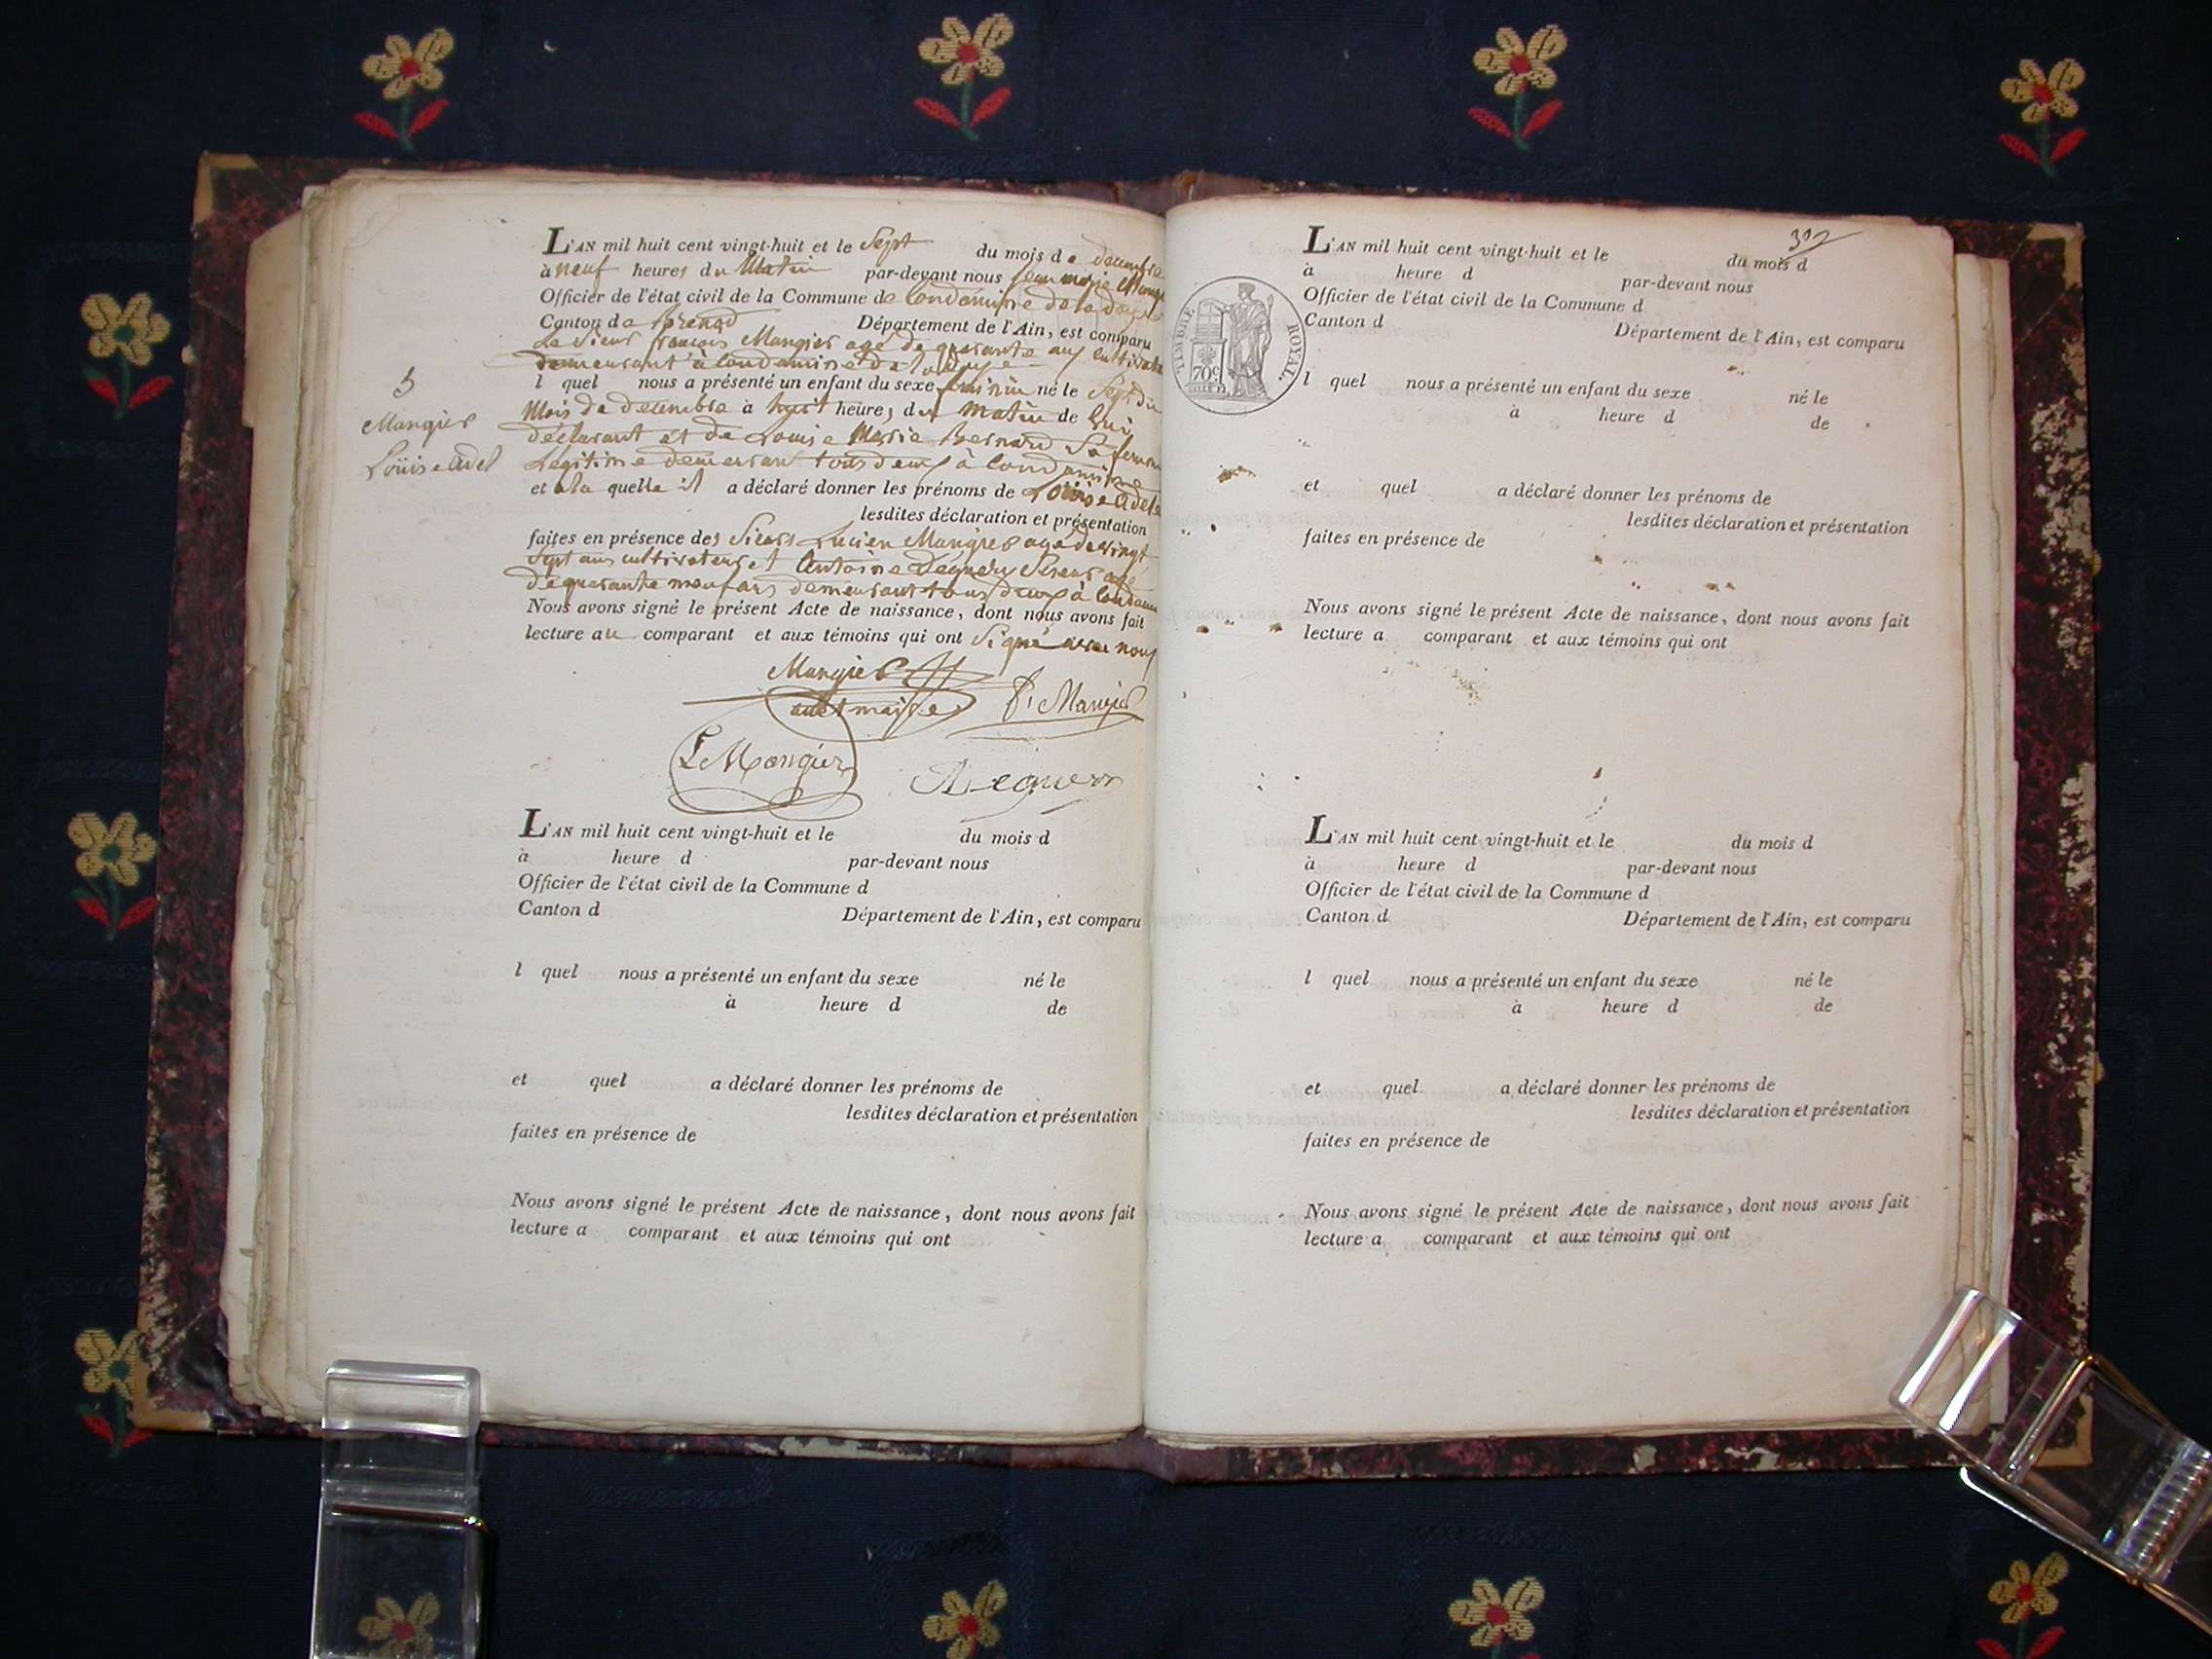 L'AN mil huit cent vingt-huit et le Sept du mois de decembre
à neuf heures du Matin par-devant nous jean marie Mangi
Officier de l'état civil de la Commune de Condamine de la doye
Canton de Brenod Département de l'Ain, est comparu
Le Sieur françois Mangier agé de quarante ans Cultivate
demeurant à Condamine de la doye
5
Mangier
Loüise adel
l quel nous a présenté un enfant du sexe feminin né le Sept du
Mois de decembre à huit heures du matin de lui
déclarant et de Louise Marie Bernard Sa femme
Legitime demeurant tous deux à Condamine
et a la quelle il a déclaré donner les prénoms de Loüise adele
lesdites déclaration et présentation
faites en présence des Sieurs Lucien Mangier agé de vingt
Sept ans cultivateur et Antoine agé
de quarante neuf ans demeurant tous deux à Condam
Nous avons signé le présent Acte de naissance, dont nous avons fait
lecture au comparant et aux témoins qui ont Signé avec nous
Mangier
adet maire
f. Mangier
L Mangier
L'AN mil huit cent vingt-huit et le du mois d
à heure d par-devant nous
Officier de l'état civil de la Commune d
Canton d Département de l'Ain, est comparu
l quel nous a présenté un enfant du sexe né le
à heure d de
et quel a déclaré donner les prénoms de
lesdites déclaration et présentation
faites en présence de
Nous avons signé le présent Acte de naissance, dont nous avons fait
lecture a comparant et aux témoins qui ont
302
TIMBRE ROYAL.
70c
L'AN mil huit cent vingt-huit et le du mois d
à heure d par-devant nous
Officier de l'état civil de la Commune d
Canton d Département de l'Ain, est comparu
l quel nous a présenté un enfant du sexe né le
à heure d de
et quel a déclaré donner les prénoms de
lesdites déclaration et présentation
faites en présence de
Nous avons signé le présent Acte de naissance, dont nous avons fait
lecture a comparant et aux témoins qui ont
L'AN mil huit cent vingt-huit et le du mois d
à heure d par-devant nous
Officier de l'état civil de la Commune d
Canton d Département de l'Ain, est comparu
l quel nous a présenté un enfant du sexe né le
à heure d de
et quel a déclaré donner les prénoms de
lesdites déclaration et présentation
faites en présence de
Nous avons signé le présent Acte de naissance, dont nous avons fait
lecture a comparant et aux témoins qui ont